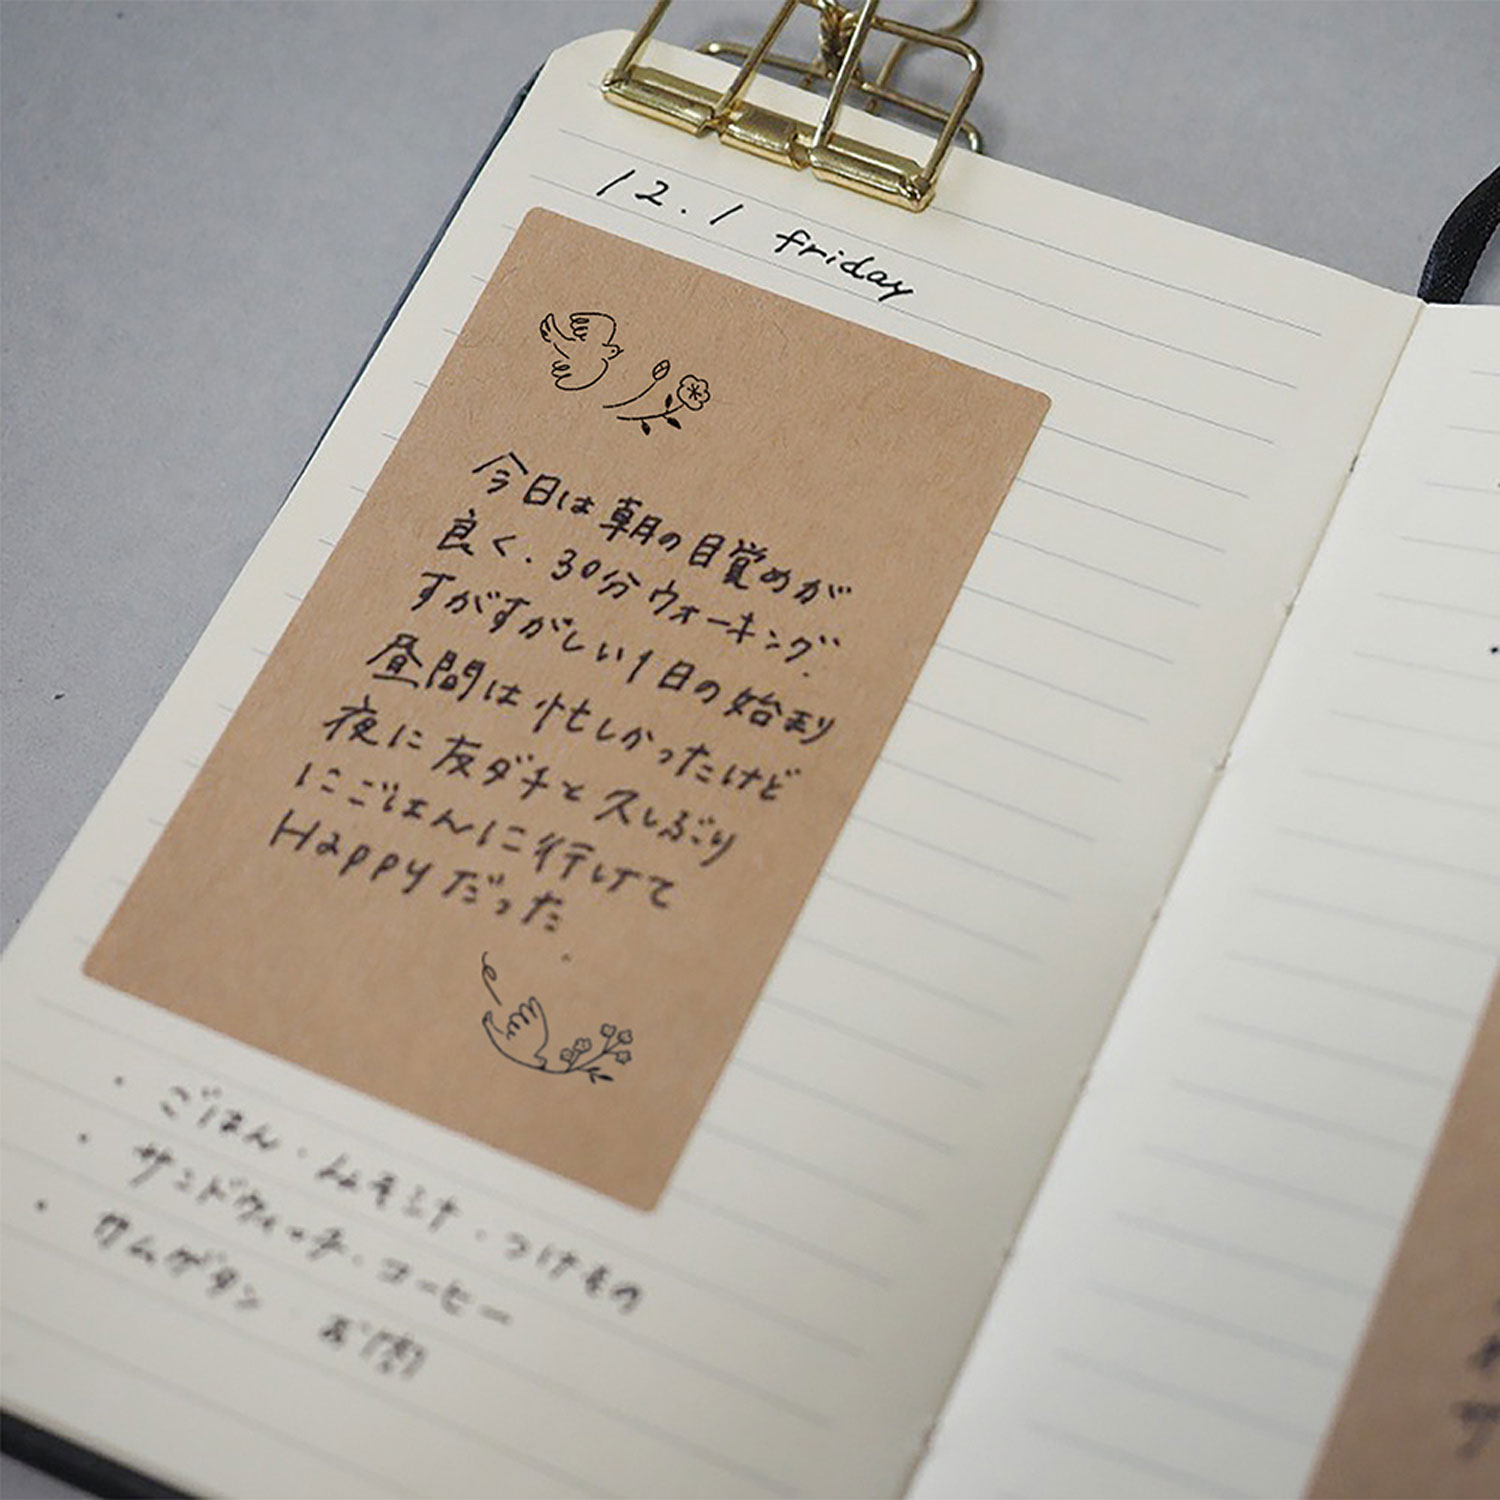 12.1 friday
今日は朝の目覚めが
良く、30分ウォーキング.
すがすがしい1日の始まり
昼間は忙しかったけど
夜に友ダチと久しぶり
にごはんに行けて
Happyだった.
・ごはん・みそシル・つけもの
・サンドウィッチ・コーヒー
・サムゲタン